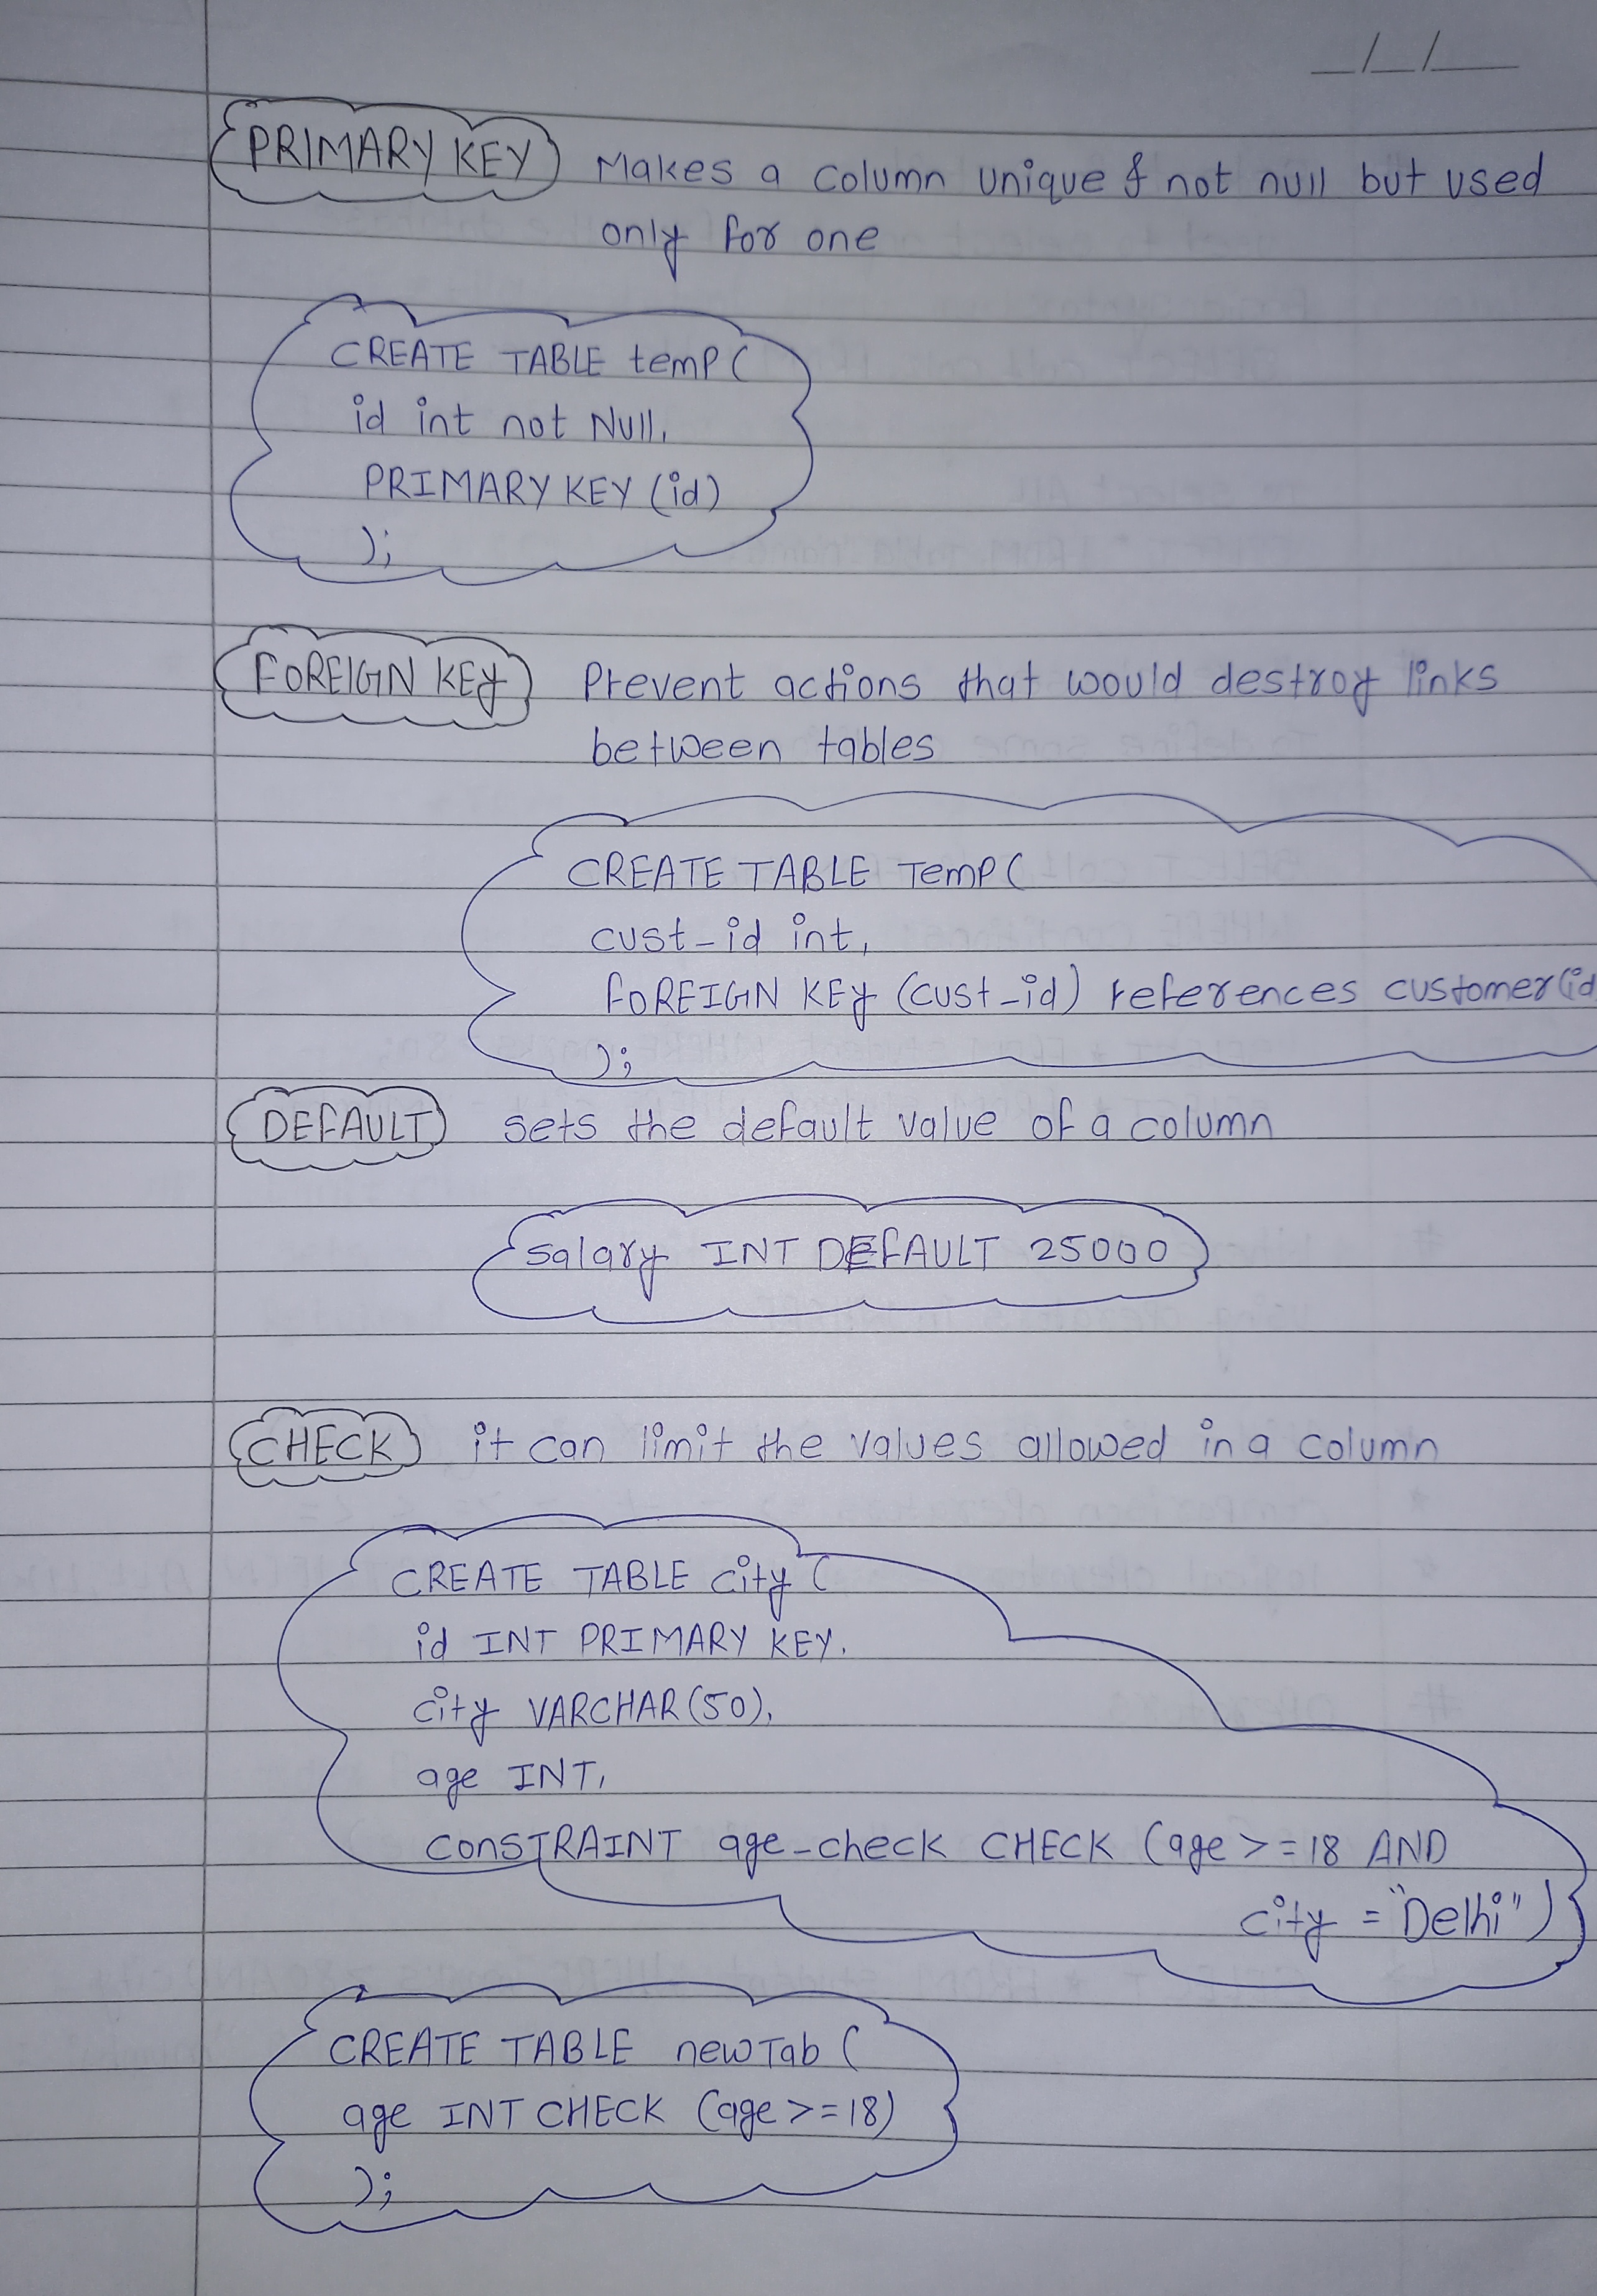 _/_/_
PRIMARY KEY Makes a column unique & not null but used
only for one
CREATE TABLE temp (
id int not Null,
PRIMARY KEY (id)
);
FOREIGN KEY Prevent actions that would destroy links
between tables
CREATE TABLE Temp (
cust_id int,
FOREIGN KEY (cust_id) references customer(id
);
DEFAULT sets the default value of a column
salary INT DEFAULT 25000
CHECK it can limit the values allowed in a column
CREATE TABLE city (
id INT PRIMARY KEY,
city VARCHAR(50),
age INT,
CONSTRAINT age_check CHECK (age >= 18 AND
city = "Delhi")
CREATE TABLE newTab (
age INT CHECK (age >= 18)
);